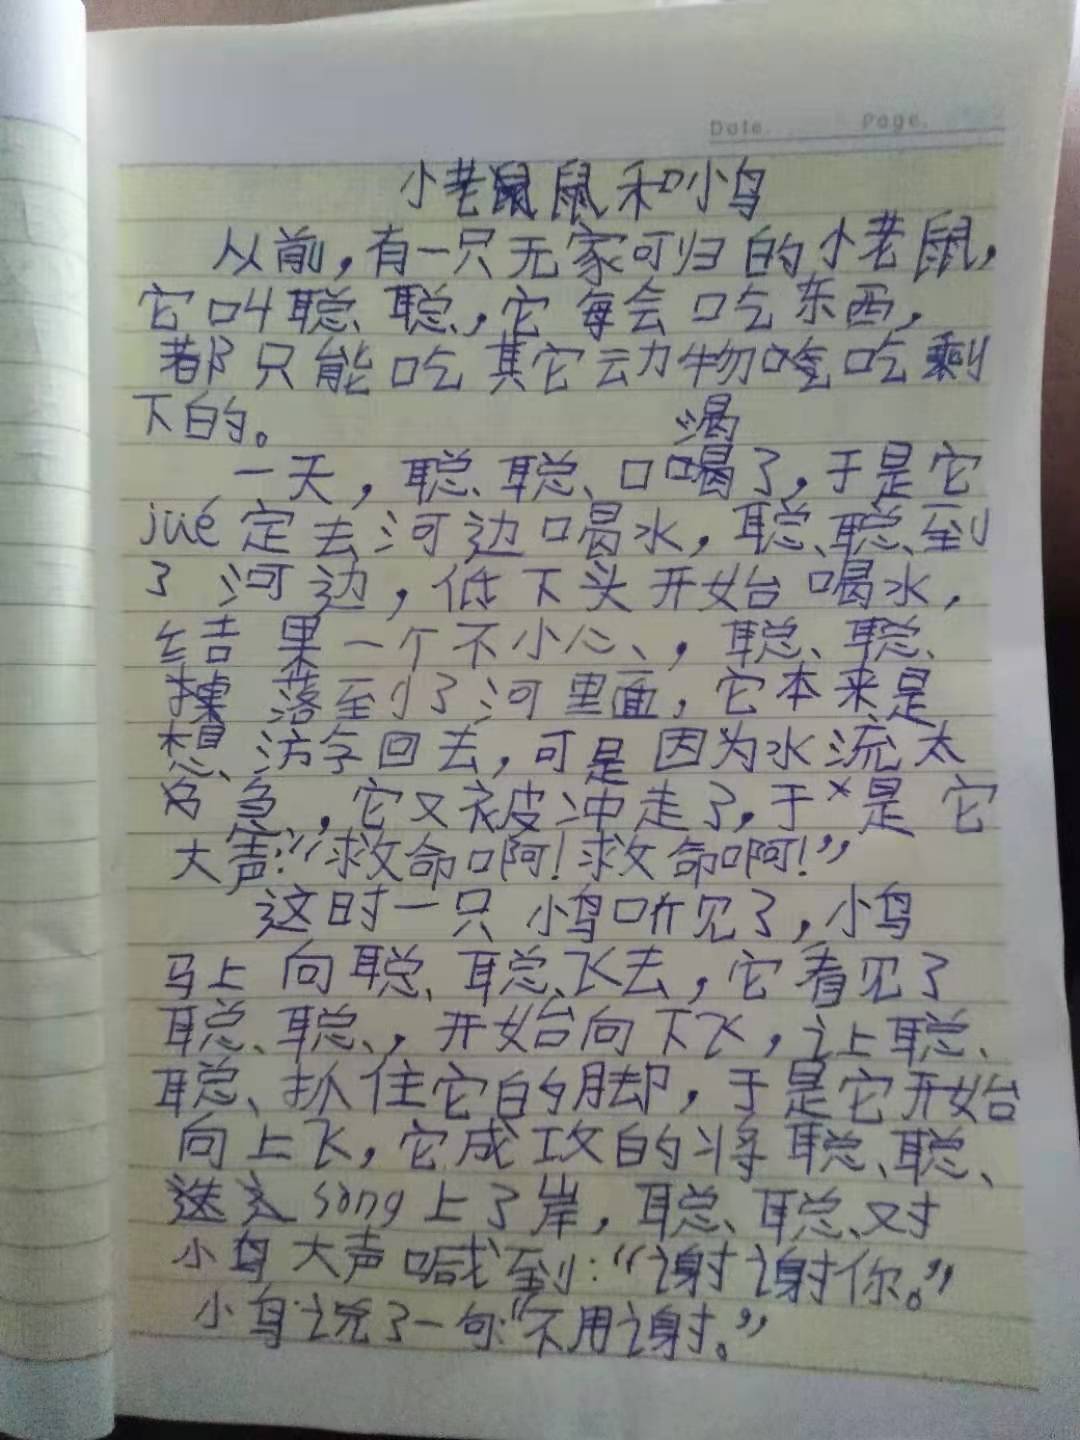 Date. Page.
小老鼠鼠和小鸟
从前，有一只无家可归的小老鼠，
它叫聪聪，它每会吃东西，
都只能吃其它动物吃剩
下的。
渴
一天，聪聪口喝了，于是它
jüé定去河边喝水，聪聪到
了河边，低下头开始喝水，
结果一个不小心，聪聪
落到了河里面，它本来是
想游回去，可是因为水流太
急，它又被冲走了，于×是它
大声：“救命啊！救命啊！”
这时一只小鸟听见了，小鸟
马上向聪聪飞去，它看见了
聪聪，开始向下飞，让聪
聪抓住它的脚，于是它开始
向上飞，它成攻的将聪聪
song上了岸，聪聪对
小鸟大声喊到：“谢谢你。”
小鸟说了一句：“不用谢。”